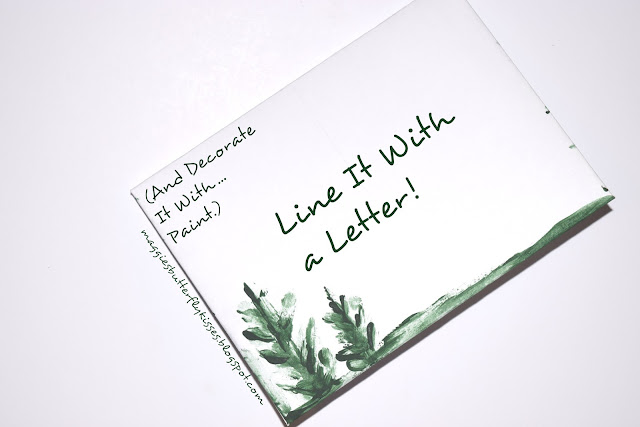 (And Decorate
It With...
Paint.)
Line It With
a Letter!
maggiesbutterflykisses.blogspot.com